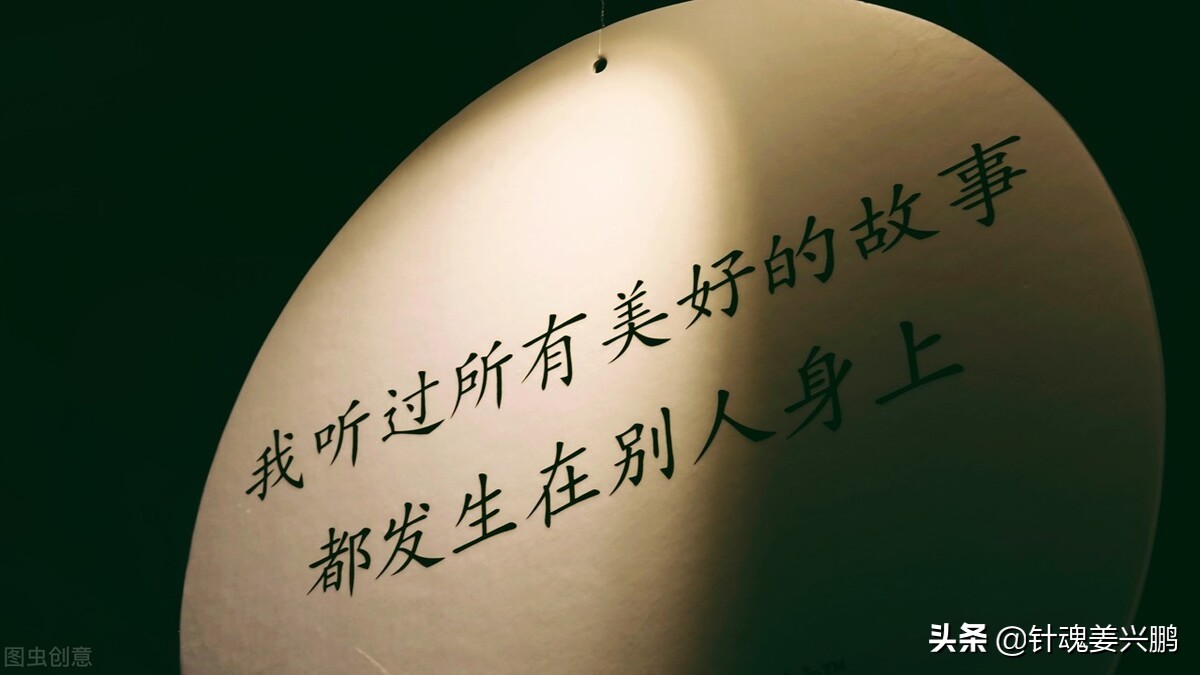 我听过所有美好的故事
都发生在别人身上
图虫创意
头条 @针魂姜兴鹏